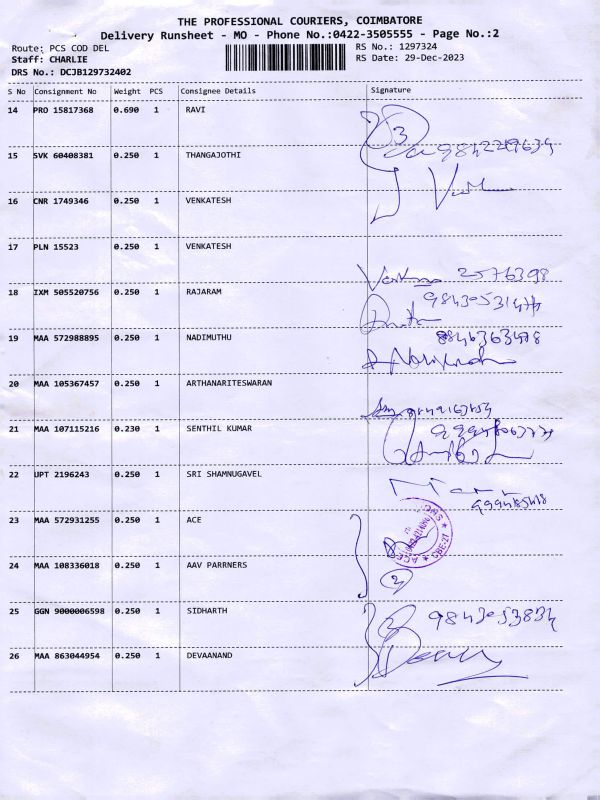 THE PROFESSIONAL COURIERS, COIMBATORE
Delivery Runsheet - MO - Phone No.:0422-3505555 - Page No.:2
Route: PCS COD DEL
RS No.: 1297324
Staff: CHARLIE
RS Date: 29-Dec-2023
DRS No.: DCJB129732402
S No Consignment No Weight PCS Consignee Details Signature
14 PRO 15817368 0.690 1 RAVI
15 SVK 60408381 0.250 1 THANGAJOTHI
16 CNR 1749346 0.250 1 VENKATESH
17 PLN 15523 0.250 1 VENKATESH
2576398
18 IXM 505520756 0.250 1 RAJARAM
19 MAA 572988895 0.250 1 NADIMUTHU
20 MAA 105367457 0.250 1 ARTHANARITESWARAN
21 MAA 107115216 0.230 1 SENTHIL KUMAR
22 UPT 2196243 0.250 1 SRI SHAMNUGAVEL
23 MAA 572931255 0.250 1 ACE
CBE-27
24 MAA 108336018 0.250 1 AAV PARRNERS
2
25 GGN 9000006598 0.250 1 SIDHARTH
9843053834
26 MAA 863044954 0.250 1 DEVAANAND